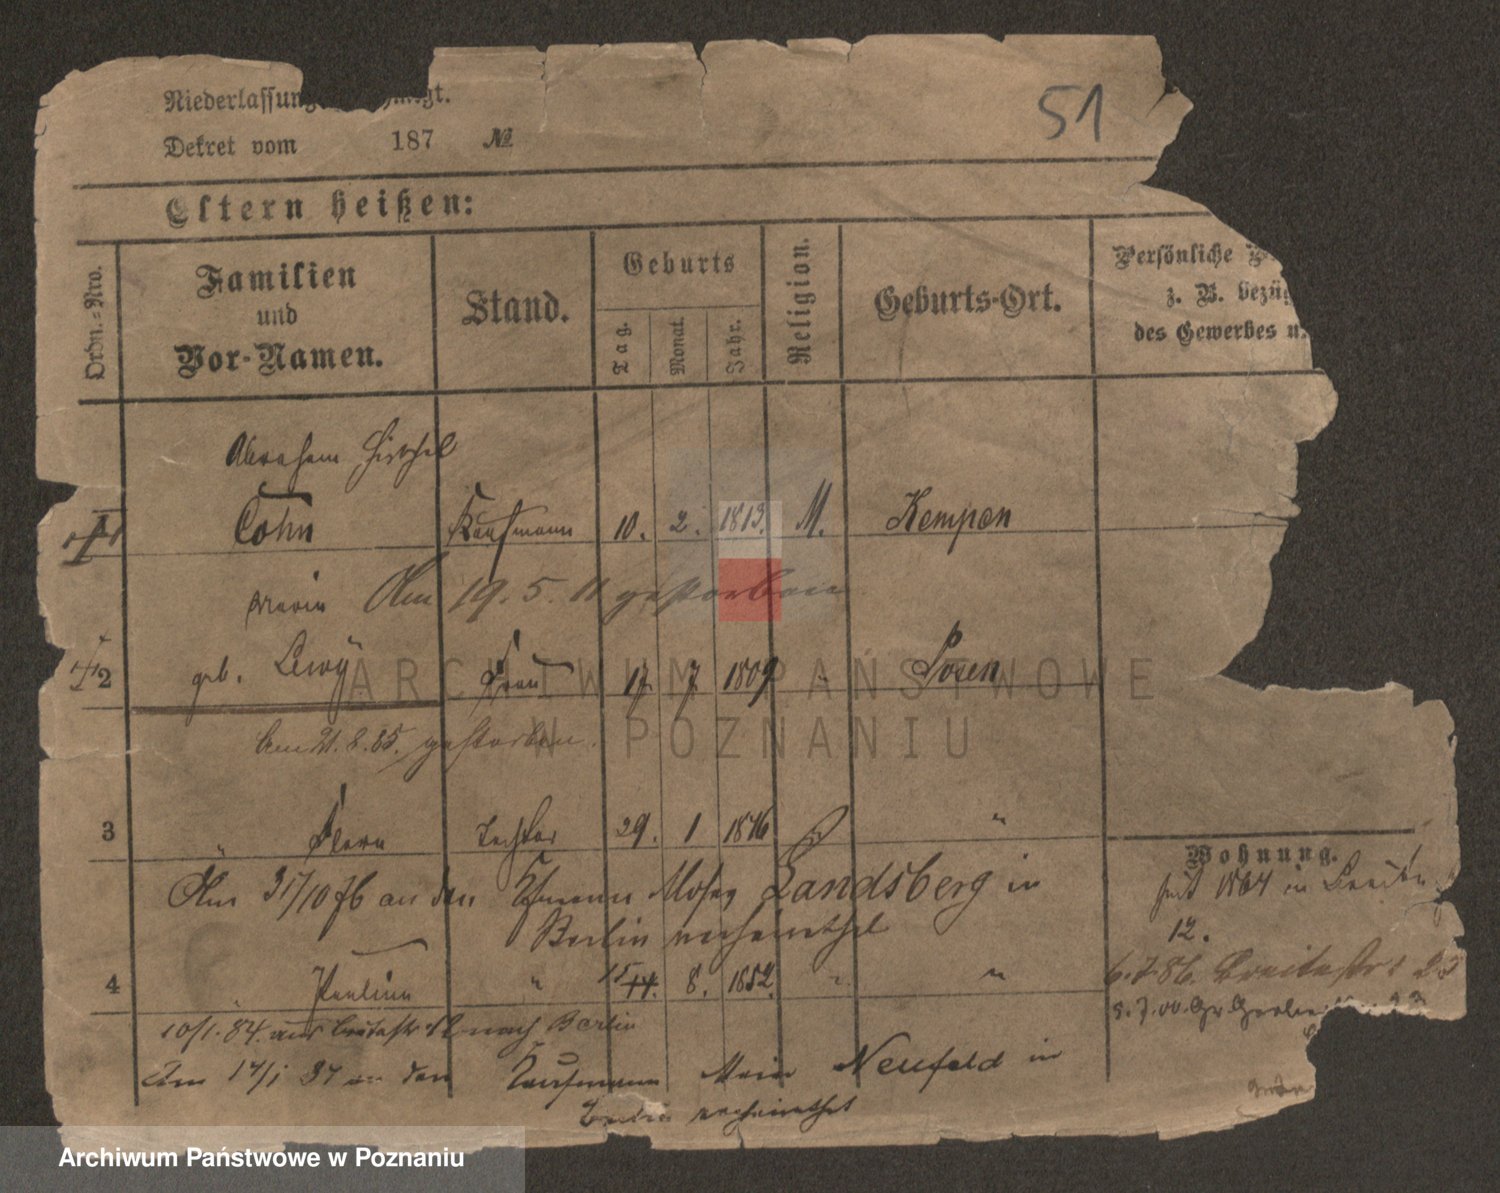 51
Niederlassungs
Dekret vom 187 №
Eltern heißen:
Ordn.-Nro.
Familien
und
Vor-Namen.
Stand.
Geburts
Tag.
Monat.
Jahr.
Religion.
Geburts-Ort.
Persönliche
z. B. bezüg
des Gewerbes u.
Abraham Hirschel
1 Cohn Kaufmann 10. 2. 1813. M. Kempen
Am 19. 5. 11 gestorben
2 geb. Lewy Frau 17 7 1809 " Posen
Am 21. 8. 85. gestorben.
3 " Flora Tochter 29. 1 1846 "
Wohnung.
seit 1864 in
12.
Am 31/10 76 an den Kfmann Moses Landsberg in
Berlin verheirathet
4 Pauline " 15 8. 1852. " "
6.7.86. Breitestr 23
10/1. 84. aus Breitestr 12 nach Berlin
Am 17/1 84 an den Kaufmann Neufeld in
Berlin verheirathet
ARCHIWUM PAŃSTWOWE
W POZNANIU
Archiwum Państwowe w Poznaniu